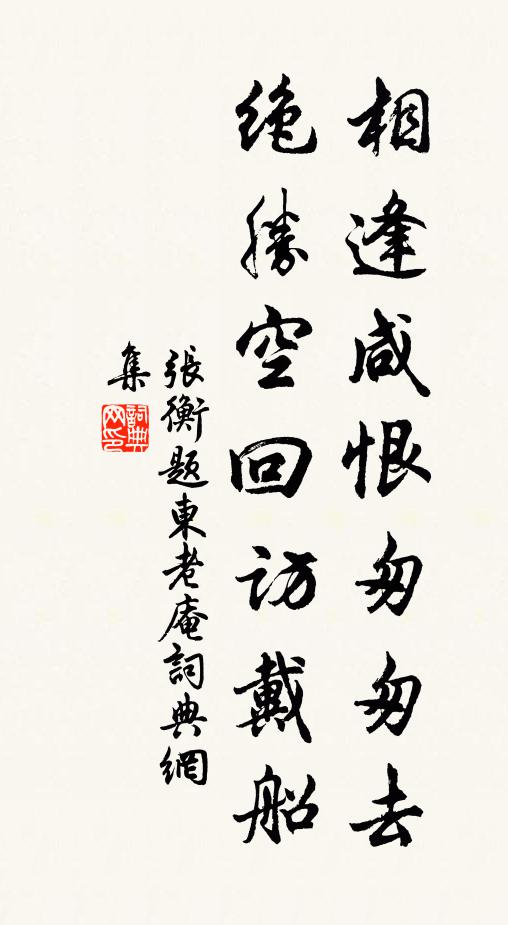 相逢咸恨匆匆去
绝胜空回访戴船
張衡题東老庵詞典網
集
詞典网印